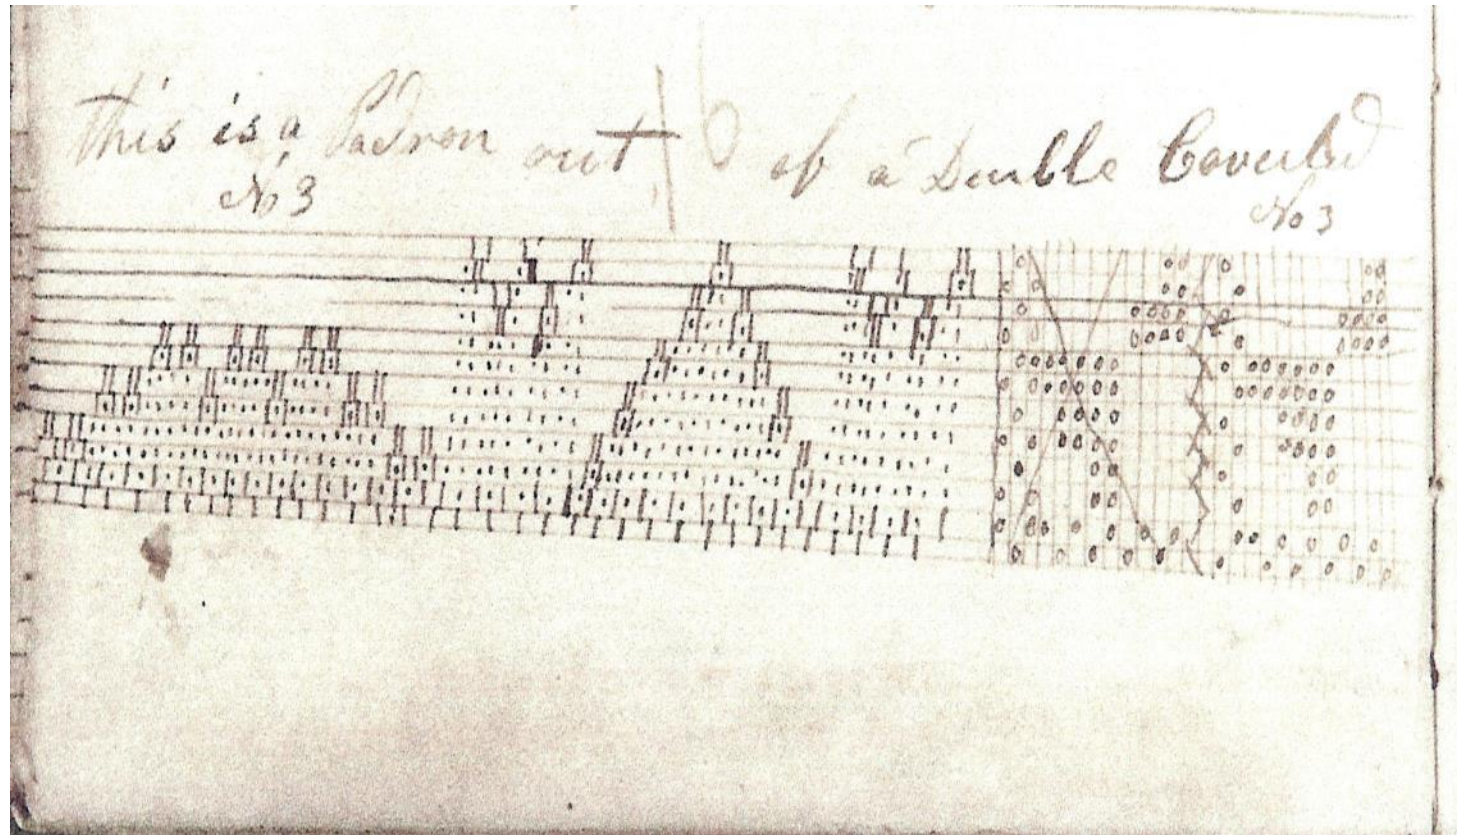 this is a Padron out of a Duble Coverled
No 3 No 3